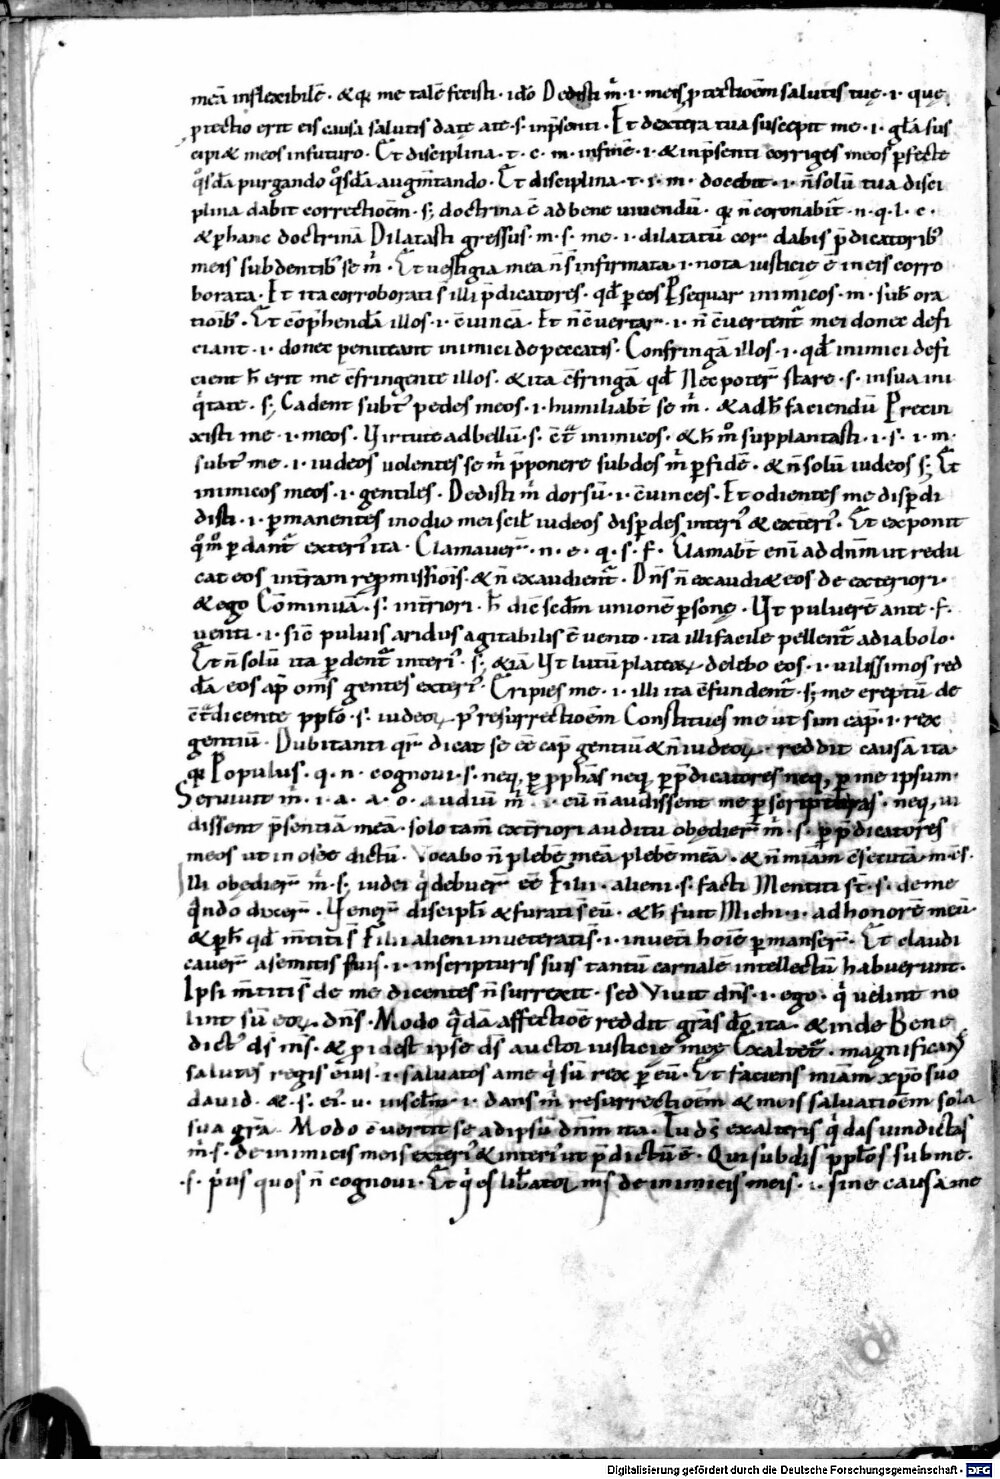 meā inflexibilē · & qꝛ me talē fecisti · idō Dedisti m̄ · i · meis ꝑtectioēm salutis tuę · i · quę
ꝓtectio erit eis causa salutis date a te · s · inp̄senti · Et dextera tua suscepit me · i · gl̄a sus
cipi& meos infuturo · Et disciplina · t · c · m · infinē · i · & inp̄senti corriges meos ꝑfecte
q̊sdā purgando q̊sdā augm̄tando · Et disciplina · t · i · m · docebit · i · n̄ solū tua disci
plina dabit correctioēm · s; doctrina ē ad bene uiuendū · qꝛ n̄ coronabit᷑ · n · q · l · c ·
& ꝑ hanc doctrinā Dilatasti gressus · m · s · me · i · dilatatū cor dabis p̄dicatorib;
meis subdentib; se m̄ · Et uestigia mea n̄ s̄ infirmata · i · nota iusticię ē in eis corro
borata · Et ita corroborati s̄ illi p̄dicatores · qd̄ ꝑ eos Psequar inimicos · m · sub ora
tioīb; · Et cōp̄hendā illos · i · cōuincā · Et n̄ cōuertar · i · n̄ cōuertent᷑ mei donec defi
ciant · i · donec peniteant inimici de peccatis · Confringā illos · i · qd̄ inimici defi
cient h̄ erit me cōfringente illos · & ita cōfringā qd̄ Nec poter̄ stare · s · in sua ini
q̇tate · s; Cadent subt᷑ pedes meos · i · humiliabt̄ se m̄ · & ad h̄ faciendū Precin
xisti me · i · meos · Virtute ad bellū · s · cōt᷑ inimicos · & h̄ m̊ supplantasti · i · s · i · m ·
subt᷑ me · i · iudeos uolentes se m̄ p̄ponere subdes m̄ ꝑ fidē · & n̄ solū iudeos s; Et
inimicos meos · i · gentiles · Dedisti m̄ dorsū · i · cōuinces · Et odientes me disꝑdi
disti · i · ꝑmanentes in odio mei scil̄ iudeos disꝑdes interi᷑ & exteri᷑ · Et exponit
q̊m̊ ꝑdant᷑ exteri᷑ ita · Clamauer̄ · n · e · q · s · f · Clamabt̄ enī ad dn̄m ut redu
cat eos in t̄ram repromissiōis · & n̄ exaudient᷑ · Dn̄s n̄ exaudi& eos de exteriori ·
& ego Cōminuā · s · int̄riori · h̄ dīc sc̄dm unionē ꝑsonę · Vt puluerē ante · f ·
uenti · i · sic̄ puluis aridus agitabilis ē uento · ita illi facile pellent᷑ a diabolo ·
Et n̄ solū ita ꝑdent᷑ interi᷑ · s; &iā Vt lutū plateaꝝ delebo eos · i · uilissimos red
dā eos ap̄ om̄s gentes exteri᷑ · Eripies me · i · illi ita cōfundent᷑ · s; me ereptū de
cōt᷑dicente ppl̄o · s · iudeoꝝ p᷑ resurrectioēm Constitues me ut sim cap̄ · i · rex
gentiū · Dubitanti qr̄ dicat se ēē cap̄ gentiū & n̄ iudeoꝝ · reddit causā ita ·
qꝛ Populus · q · n · cognoui · s · neq; ꝑ ꝓph̄as neq; ꝑ p̄dicatores neq; ꝑ me ipsum ·
Seruiuit m̄ · i · a · a · o · audiū m̄ · i · cū n̄ audissent me ꝑ scripturas · neq; ui
dissent p̄sentiā meā · solo tam̄ ext̄riori auditu obędier̄ m̄ · s · ꝑ p̄dicatores
meos ut in oseę dictū · Vocabo n̄ plebē meā plebē meā · & n̄ mīam cōsecutā · m · cōs ·
Illi obędier̄ m̄ · s; iudei q̇ debuer̄ ēē Filii · alieni · s · facti Mentiti st̄ · s · de me
q̄ndo dixer̄ · Vener̄ discipl̄i & furati s̄ eū · & h̄ fuit Michi · i · ad honorē meū ·
& ꝑ h̄ qd̄ m̄titi s̄ Filii alieni inueterati s̄ · i · inuet̄i hoīe ꝑmanser̄ · Et claudi
cauer̄ a semitis suis · i · in scripturis suis tantū carnalē intellectū habuerunt ·
Ipsi m̄titi s̄ de me dicentes n̄ surrexit · sed Viuit dn̄s · i · ego · q̇ uelint no
lint sū eoꝝ dn̄s · Modo q̄dā affectioē reddit grās dō ita · & inde Bene
dict᷑ ds̄ m̄s · & ꝑ id est ipse ds̄ auctor iusticię meę Exaltet᷑ · magnificans
salutes regis eius · i · saluatos a me q̇ sū rex ꝑ eū · Et faciens mīam xp̄o suo
dauid · & · s · ei᷑ · u · in sclm̄ · i · dans m̄ resurrectioēm & meis saluatioēm sola
sua grā · Modo cōuertit se ad ipsū dn̄m ita · Tu ds̄ exalteris q̇ das uindictas
m̄ · s · de inimicis meis exteri᷑ & interi᷑ ut p̄dictū ē · Qui subdis ppl̄os sub me ·
· s · pius quos n̄ cognoui · Et q̇ es lib̄ator m̄s de inimicis meis · i · sine causa me
Digitalisierung gefördert durch die Deutsche Forschungsgemeinschaft · DFG